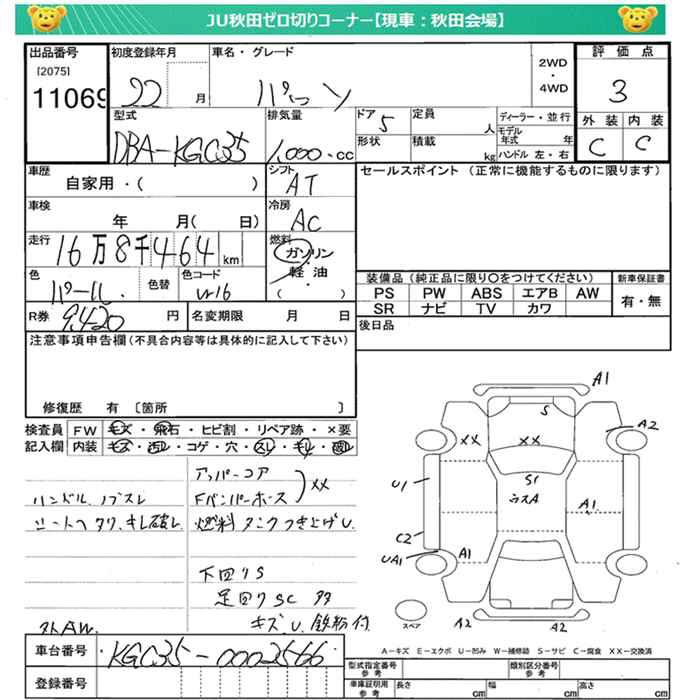 JU秋田ゼロ切りコーナー【現車：秋田会場】
出品番号
[2075]
11069
初度登録年月
22 月
車名・グレード
パッソ
2WD
・
4WD
評価点
3
外装 内装
C C
型式
DBA-KGC35
排気量
1,000 cc
ドア
5
形状
定員
人
積載
kg
ディーラー・並行
モデル年式 年
ハンドル 左・右
車歴
自家用・( )
シフト
AT
セールスポイント (正常に機能するものに限ります)
車検
年 月( 日)
冷房
AC
走行
16万8千464km
燃料
ガソリン
軽油
( )
色
パール
色替
色コード
W16
装備品 (純正品に限り〇をつけてください)
PS PW ABS エアB AW
SR ナビ TV カワ
新車保証書
有・無
R券
9,420円
名変期限 月 日
後日品
注意事項申告欄 (不具合内容等は具体的に記入して下さい)
修復歴 有 〔箇所 〕
検査員記入欄
FW キズ・飛石・ヒビ割・リペア跡・×要
内装 キズ・汚レ・コゲ・穴・スレ・キレ・
アッパーコア
Fバンパーホース
××
ハンドル、ノブスレ
シートヘタリ、キレ破レ
燃料タンクつき上げU
下回りS
足回りSC 多
キズ、U、鉄粉付
社外AW
A1
S
A2
×× ××
U1
S1
ウスA
A1
C2
UA1
A1
A2 A2
スペア
A－キズ E－エクボ U－凹み W－補修跡 S－サビ C－腐食 ××－交換済
車台番号
KGC35-0002566
登録番号
型式指定番号
参考
類別区分番号
参考
車庫証明用
参考
長さ cm
幅 cm
高さ cm